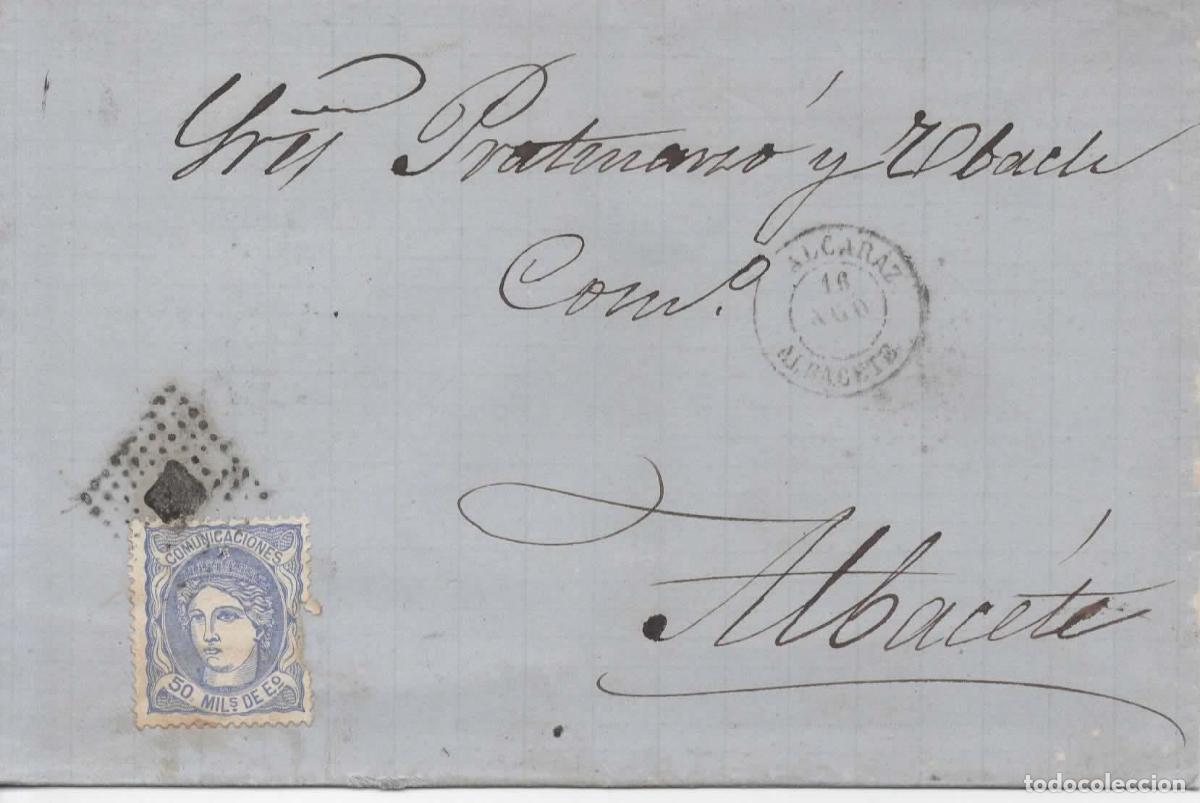 Sres Pratmarsó y Ubach
Com.o
ALCARAZ
16
AGO
ALBACETE
Albacete
COMUNICACIONES
50 MILS. DE EO.
todocoleccion